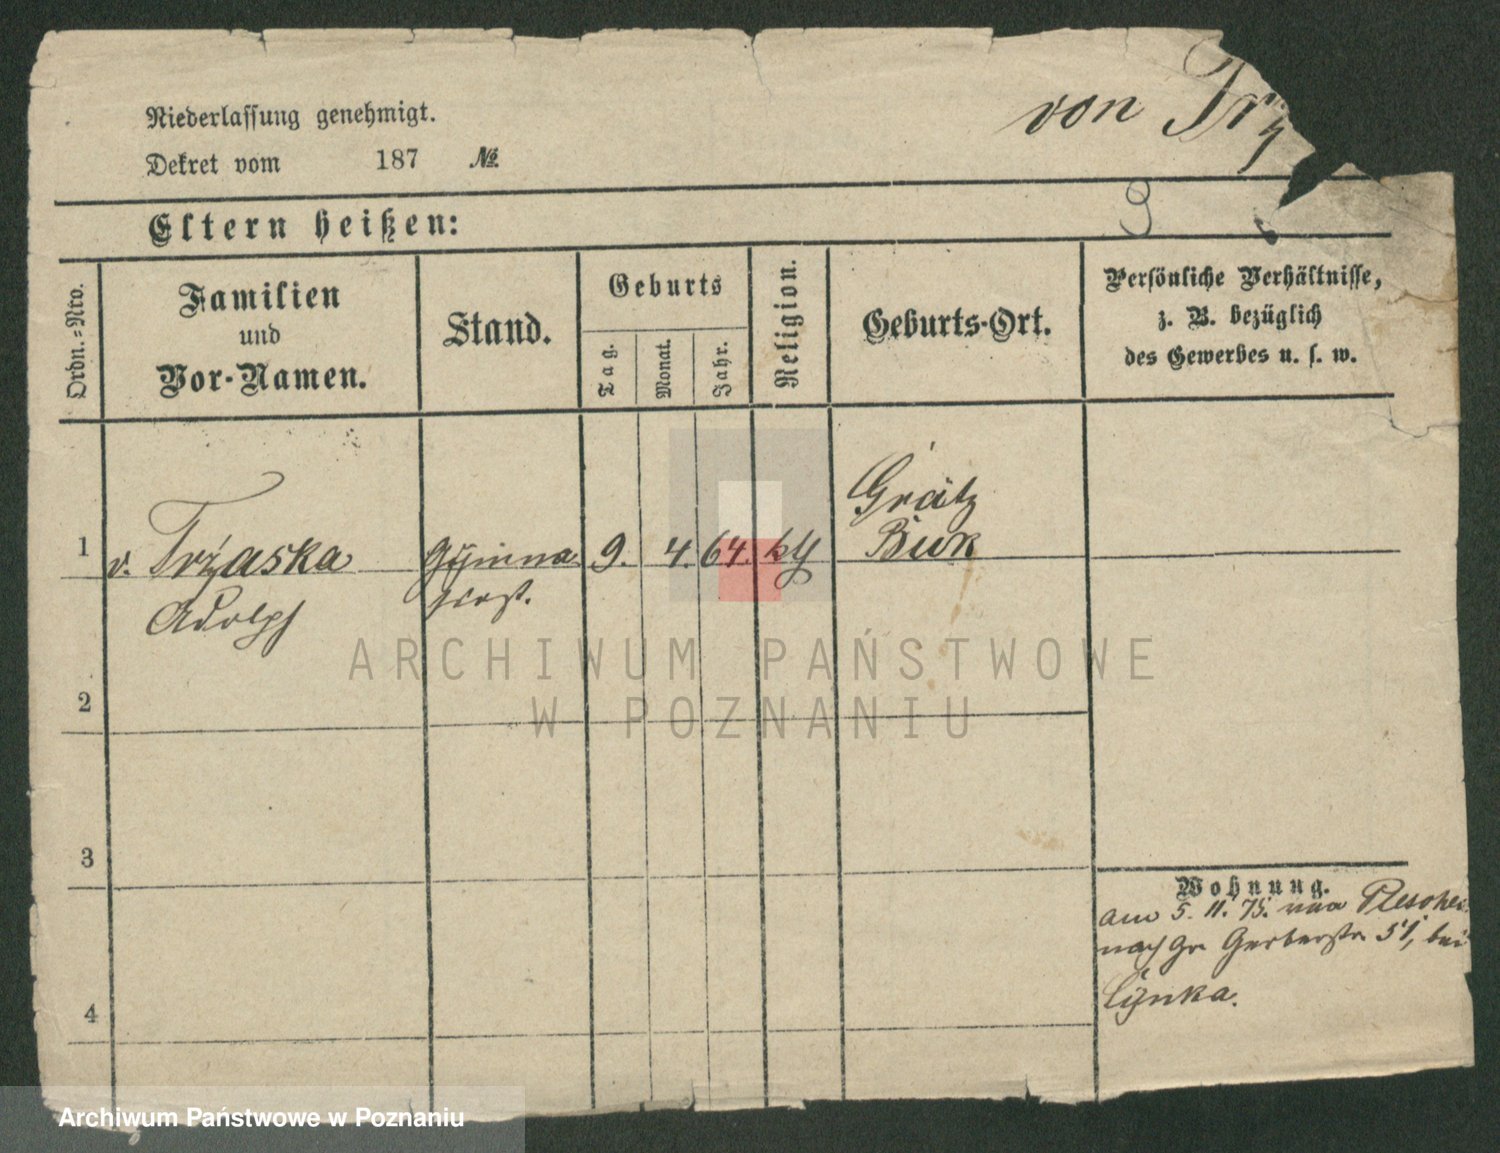 von Trz
Niederlassung genehmigt.
Dekret vom 187 №
9
Eltern heißen:
Ordn.-Nro.
Familien
und
Vor-Namen.
Stand.
Geburts
Tag.
Monat.
Jahr.
Religion.
Geburts-Ort.
Persönliche Verhältnisse,
z. B. bezüglich
des Gewerbes u. s. w.
1
v. Trźaska
Adolph
Gymna
siast.
9. 4. 64.
Grätz
Buk
2
3
4
Wohnung.
am 5. 11. 75. von
nach Gr. Gerberstr. 51, bei
Cynka.
ARCHIWUM PAŃSTWOWE
W POZNANIU
Archiwum Państwowe w Poznaniu